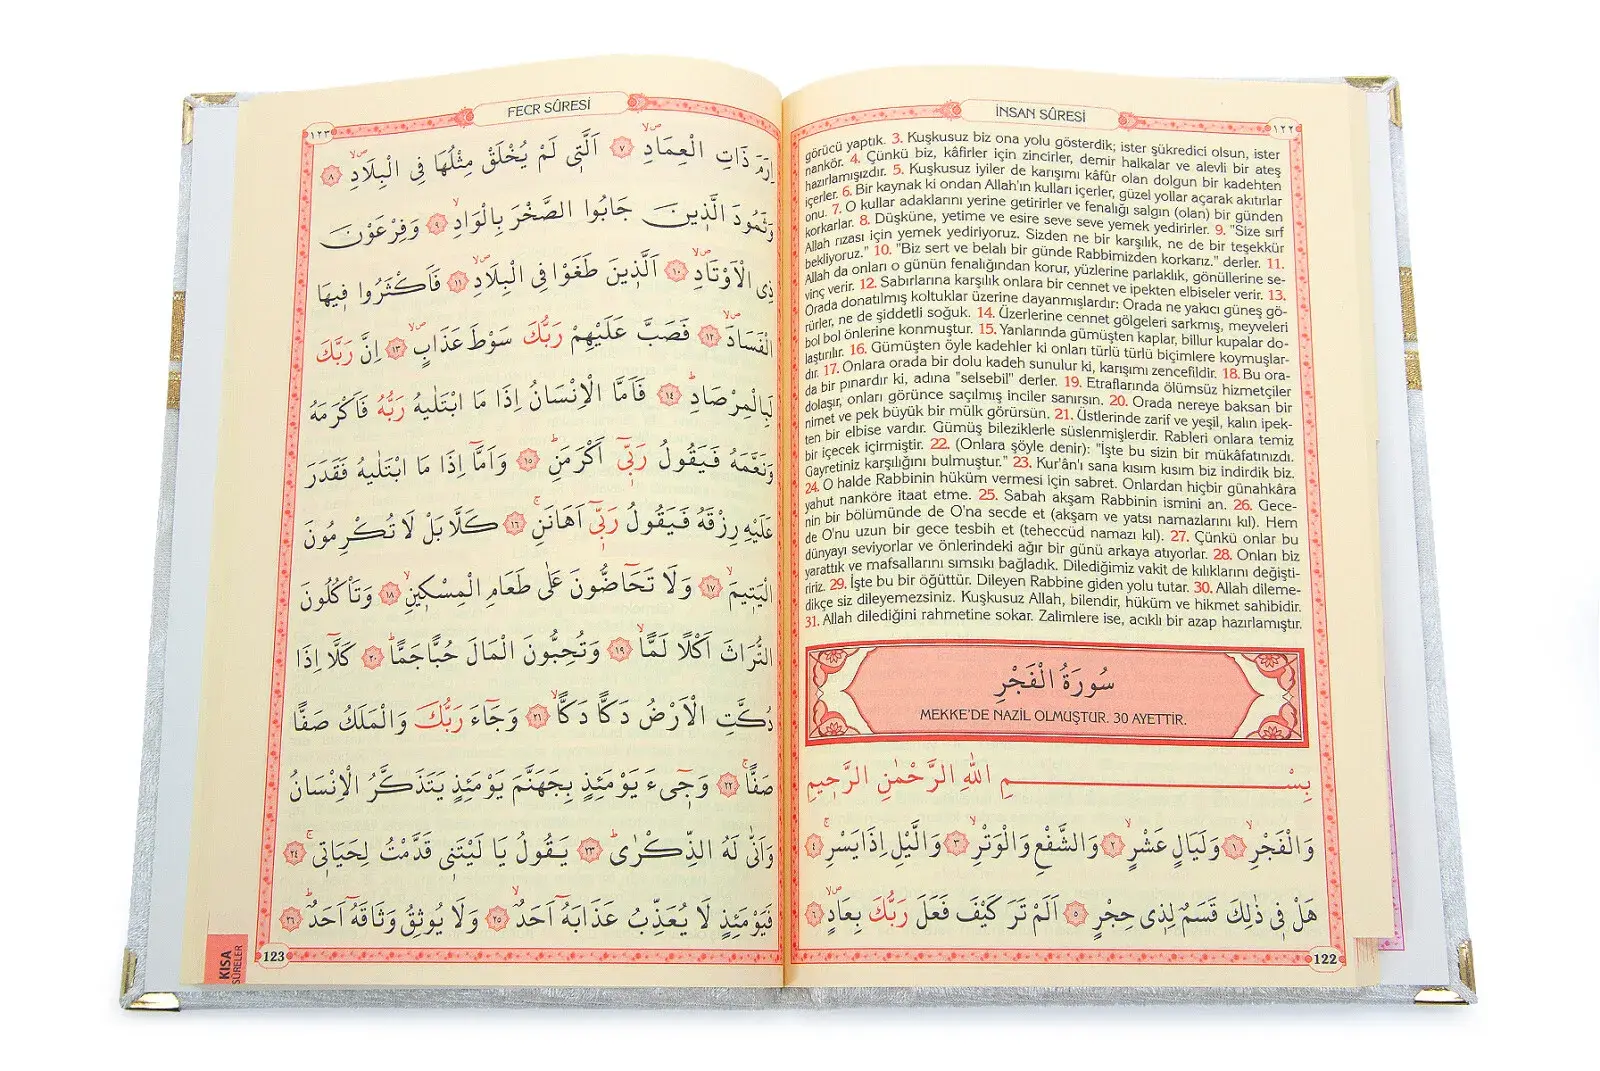 İNSAN SÛRESİ
١٢٢
görücü yaptık. 3. Kuşkusuz biz ona yolu gösterdik; ister şükredici olsun, ister
nankör. 4. Çünkü biz, kâfirler için zincirler, demir halkalar ve alevli bir ateş
hazırlamışızdır. 5. Kuşkusuz iyiler de karışımı kâfûr olan dolgun bir kadehten
içerler. 6. Bir kaynak ki ondan Allah'ın kulları içerler, güzel yollar açarak akıtırlar
onu. 7. O kullar adaklarını yerine getirirler ve fenalığı salgın (olan) bir günden
korkarlar. 8. Düşküne, yetime ve esire seve seve yemek yedirirler. 9. "Size sırf
Allah rızası için yemek yediriyoruz. Sizden ne bir karşılık, ne de bir teşekkür
bekliyoruz." 10. "Biz sert ve belalı bir günde Rabbimizden korkarız." derler. 11.
Allah da onları o günün fenalığından korur, yüzlerine parlaklık, gönüllerine se-
vinç verir. 12. Sabırlarına karşılık onlara bir cennet ve ipekten elbiseler verir. 13.
Orada donatılmış koltuklar üzerine dayanmışlardır: Orada ne yakıcı güneş gö-
rürler, ne de şiddetli soğuk. 14. Üzerlerine cennet gölgeleri sarkmış, meyveleri
bol bol önlerine konmuştur. 15. Yanlarında gümüşten kaplar, billur kupalar do-
laştırılır. 16. Gümüşten öyle kadehler ki onları türlü türlü biçimlere koymuşlar-
dır. 17. Onlara orada bir dolu kadeh sunulur ki, karışımı zencefildir. 18. Bu ora-
da bir pınardır ki, adına "selsebil" derler. 19. Etraflarında ölümsüz hizmetçiler
dolaşır, onları görünce saçılmış inciler sanırsın. 20. Orada nereye baksan bir
nimet ve pek büyük bir mülk görürsün. 21. Üstlerinde zarif ve yeşil, kalın ipek-
ten bir elbise vardır. Gümüş bileziklerle süslenmişlerdir. Rableri onlara temiz
bir içecek içirmiştir. 22. (Onlara şöyle denir): "İşte bu sizin bir mükâfatınızdı.
Gayretiniz karşılığını bulmuştur." 23. Kur'ân'ı sana kısım kısım biz indirdik biz.
24. O halde Rabbinin hüküm vermesi için sabret. Onlardan hiçbir günahkâra
yahut nanköre itaat etme. 25. Sabah akşam Rabbinin ismini an. 26. Gece-
nin bir bölümünde de O'na secde et (akşam ve yatsı namazlarını kıl). Hem
de O'nu uzun bir gece tesbih et (teheccüd namazı kıl). 27. Çünkü onlar bu
dünyayı seviyorlar ve önlerindeki ağır bir günü arkaya atıyorlar. 28. Onları biz
yarattık ve mafsallarını sımsıkı bağladık. Dilediğimiz vakit de kılıklarını değişti-
ririz. 29. İşte bu bir öğüttür. Dileyen Rabbine giden yolu tutar. 30. Allah dileme-
dikçe siz dileyemezsiniz. Kuşkusuz Allah, bilendir, hüküm ve hikmet sahibidir.
31. Allah dilediğini rahmetine sokar. Zalimlere ise, acıklı bir azap hazırlamıştır.
سُورَةُ الْفَجْرِ
MEKKE'DE NAZİL OLMUŞTUR. 30 AYETTİR.
بِسْمِ اللهِ الرَّحْمٰنِ الرَّحِيمِ
وَالْفَجْرِۙ ١ وَلَيَالٍ عَشْرٍۙ ٢ وَالشَّفْعِ وَالْوَتْرِۙ ٣ وَالَّيْلِ اِذَا يَسْرِۚ ٤
هَلْ فٖي ذٰلِكَ قَسَمٌ لِذٖي حِجْرٍ ٥ اَلَمْ تَرَ كَيْفَ فَعَلَ رَبُّكَ بِعَادٍۙ ٦
122
FECR SÛRESİ
١٢٣
اِرَمَ ذَاتِ الْعِمَادِۙ ٧ اَلَّتٖي لَمْ يُخْلَقْ مِثْلُهَا فِي الْبِلَادِۙ ٨
وَثَمُودَ الَّذٖينَ جَابُوا الصَّخْرَ بِالْوَادِۙ ٩ وَفِرْعَوْنَ
ذِي الْاَوْتَادِۙ ١٠ اَلَّذٖينَ طَغَوْا فِي الْبِلَادِۙ ١١ فَاَكْثَرُوا فٖيهَا
الْفَسَادَۙ ١٢ فَصَبَّ عَلَيْهِمْ رَبُّكَ سَوْطَ عَذَابٍۙ ١٣ اِنَّ رَبَّكَ
لَبِالْمِرْصَادِؕ ١٤ فَاَمَّا الْاِنْسَانُ اِذَا مَا ابْتَلٰيهُ رَبُّهُ فَاَكْرَمَهُ
وَنَعَّمَهُ فَيَقُولُ رَبّٖٓي اَكْرَمَنِؕ ١٥ وَاَمَّٓا اِذَا مَا ابْتَلٰيهُ فَقَدَرَ
عَلَيْهِ رِزْقَهُ فَيَقُولُ رَبّٖٓي اَهَانَنِۚ ١٦ كَلَّا بَلْ لَا تُكْرِمُونَ
الْيَتٖيمَۙ ١٧ وَلَا تَحَٓاضُّونَ عَلٰى طَعَامِ الْمِسْكٖينِۙ ١٨ وَتَاْكُلُونَ
التُّرَاثَ اَكْلًا لَمًّاۙ ١٩ وَتُحِبُّونَ الْمَالَ حُبًّا جَمًّاؕ ٢٠ كَلَّٓا اِذَا
دُكَّتِ الْاَرْضُ دَكًّا دَكًّاۙ ٢١ وَجَٓاءَ رَبُّكَ وَالْمَلَكُ صَفًّا
صَفًّاۚ ٢٢ وَجٖٓيءَ يَوْمَئِذٍ بِجَهَنَّمَ يَوْمَئِذٍ يَتَذَكَّرُ الْاِنْسَانُ
وَاَنّٰى لَهُ الذِّكْرٰىؕ ٢٣ يَقُولُ يَا لَيْتَنٖي قَدَّمْتُ لِحَيَاتٖيۚ ٢٤
فَيَوْمَئِذٍ لَا يُعَذِّبُ عَذَابَهُٓ اَحَدٌۙ ٢٥ وَلَا يُوثِقُ وَثَاقَهُٓ اَحَدٌؕ ٢٦
123
KISA
SÛRELER